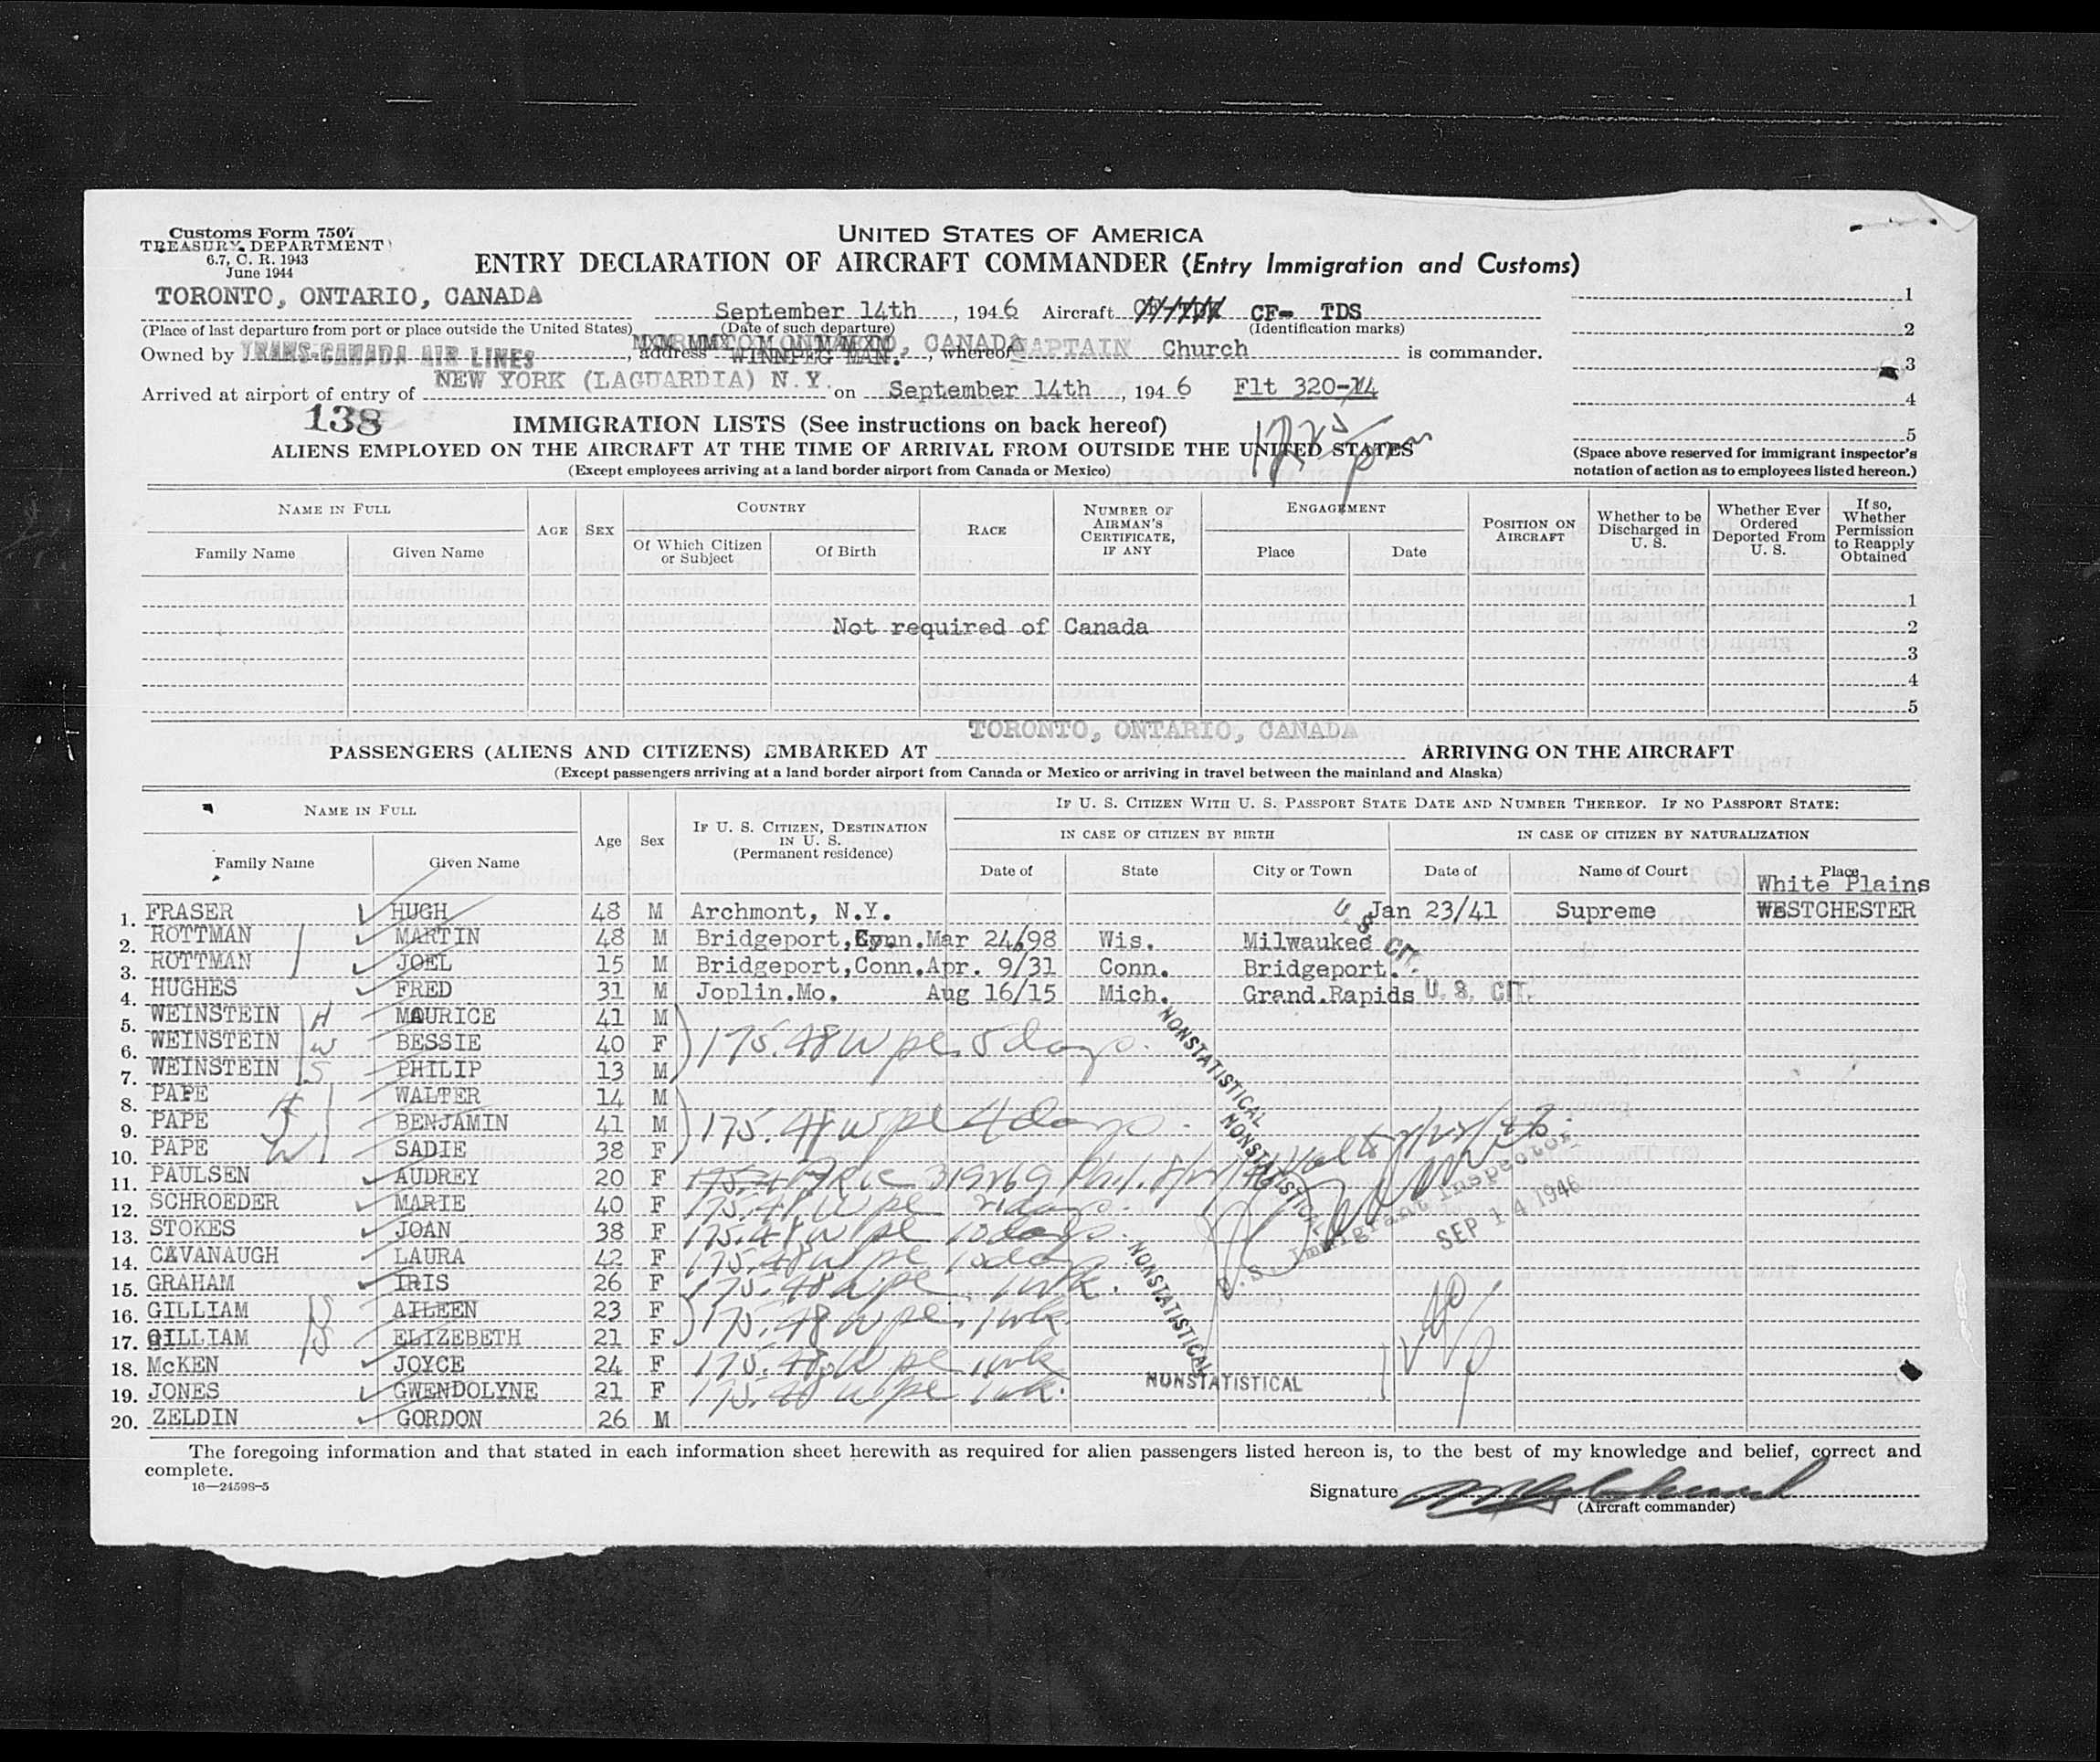 Customs Form 7507
TREASURY DEPARTMENT
6.7, C. R. 1943
June 1944
UNITED STATES OF AMERICA
ENTRY DECLARATION OF AIRCRAFT COMMANDER (Entry Immigration and Customs)
TORONTO, ONTARIO, CANADA September 14th, 1946 Aircraft CF- TDS 1
(Place of last departure from port or place outside the United States) (Date of such departure) (Identification marks) 2
Owned by TRANS-CANADA AIR LINES, address WINNIPEG MAN. CANADA, whereof CAPTAIN Church is commander. 3
Arrived at airport of entry of NEW YORK (LAGUARDIA) N.Y. on September 14th, 1946 Flt 320-14 4
138 IMMIGRATION LISTS (See instructions on back hereof) 5
ALIENS EMPLOYED ON THE AIRCRAFT AT THE TIME OF ARRIVAL FROM OUTSIDE THE UNITED STATES (Space above reserved for immigrant inspector's
(Except employees arriving at a land border airport from Canada or Mexico) notation of action as to employees listed hereon.)
NAME IN FULL AGE SEX COUNTRY RACE NUMBER OF AIRMAN'S CERTIFICATE, IF ANY ENGAGEMENT POSITION ON AIRCRAFT Whether to be Discharged in U. S. Whether Ever Ordered Deported From U. S. If so, Whether Permission to Reapply Obtained
Family Name Given Name Of Which Citizen or Subject Of Birth Place Date
1
Not required of Canada 2
3
4
5
TORONTO, ONTARIO, CANADA
PASSENGERS (ALIENS AND CITIZENS) EMBARKED AT ARRIVING ON THE AIRCRAFT
(Except passengers arriving at a land border airport from Canada or Mexico or arriving in travel between the mainland and Alaska)
NAME IN FULL Age Sex IF U. S. CITIZEN, DESTINATION IN U. S. (Permanent residence) IF U. S. CITIZEN WITH U. S. PASSPORT STATE DATE AND NUMBER THEREOF. IF NO PASSPORT STATE:
IN CASE OF CITIZEN BY BIRTH IN CASE OF CITIZEN BY NATURALIZATION
Family Name Given Name Date of State City or Town Date of Name of Court Place
White Plains
1. FRASER HUGH 48 M Archmont, N.Y. Jan 23/41 Supreme WESTCHESTER
2. ROTTMAN MARTIN 48 M Bridgeport, Conn. Mar 24/98 Wis. Milwaukee U. S. CIT.
3. ROTTMAN JOEL 15 M Bridgeport,Conn. Apr. 9/31 Conn. Bridgeport.
4. HUGHES FRED 31 M Joplin.Mo. Aug 16/15 Mich. Grand.Rapids U. S. CIT.
5. WEINSTEIN H MAURICE 41 M
6. WEINSTEIN W BESSIE 40 F 175.48 W pl 5 days NONSTATISTICAL
7. WEINSTEIN S PHILIP 13 M
8. PAPE WALTER 14 M
9. PAPE BENJAMIN 41 M 175.48 W pl 4 days NONSTATISTICAL
10. PAPE W SADIE 38 F
11. PAULSEN AUDREY 20 F
12. SCHROEDER MARIE 40 F 175.48 W pl days U.S. Immigrant Inspector
13. STOKES JOAN 38 F 175.48 W pl 10 days SEP 14 1946
14. CAVANAUGH LAURA 42 F 175.48 W pl 10 days
15. GRAHAM IRIS 26 F 175.48 W pl 1 wk. NONSTATISTICAL
16. GILLIAM S AILEEN 23 F 175.48 W pl 1 wk
17. GILLIAM S ELIZEBETH 21 F
18. McKEN JOYCE 24 F 175.48 W pl 1 wk
19. JONES GWENDOLYNE 21 F 175.48 W pl 1 wk. NONSTATISTICAL
20. ZELDIN GORDON 26 M
The foregoing information and that stated in each information sheet herewith as required for alien passengers listed hereon is, to the best of my knowledge and belief, correct and
complete.
16—24598-5
Signature
(Aircraft commander)